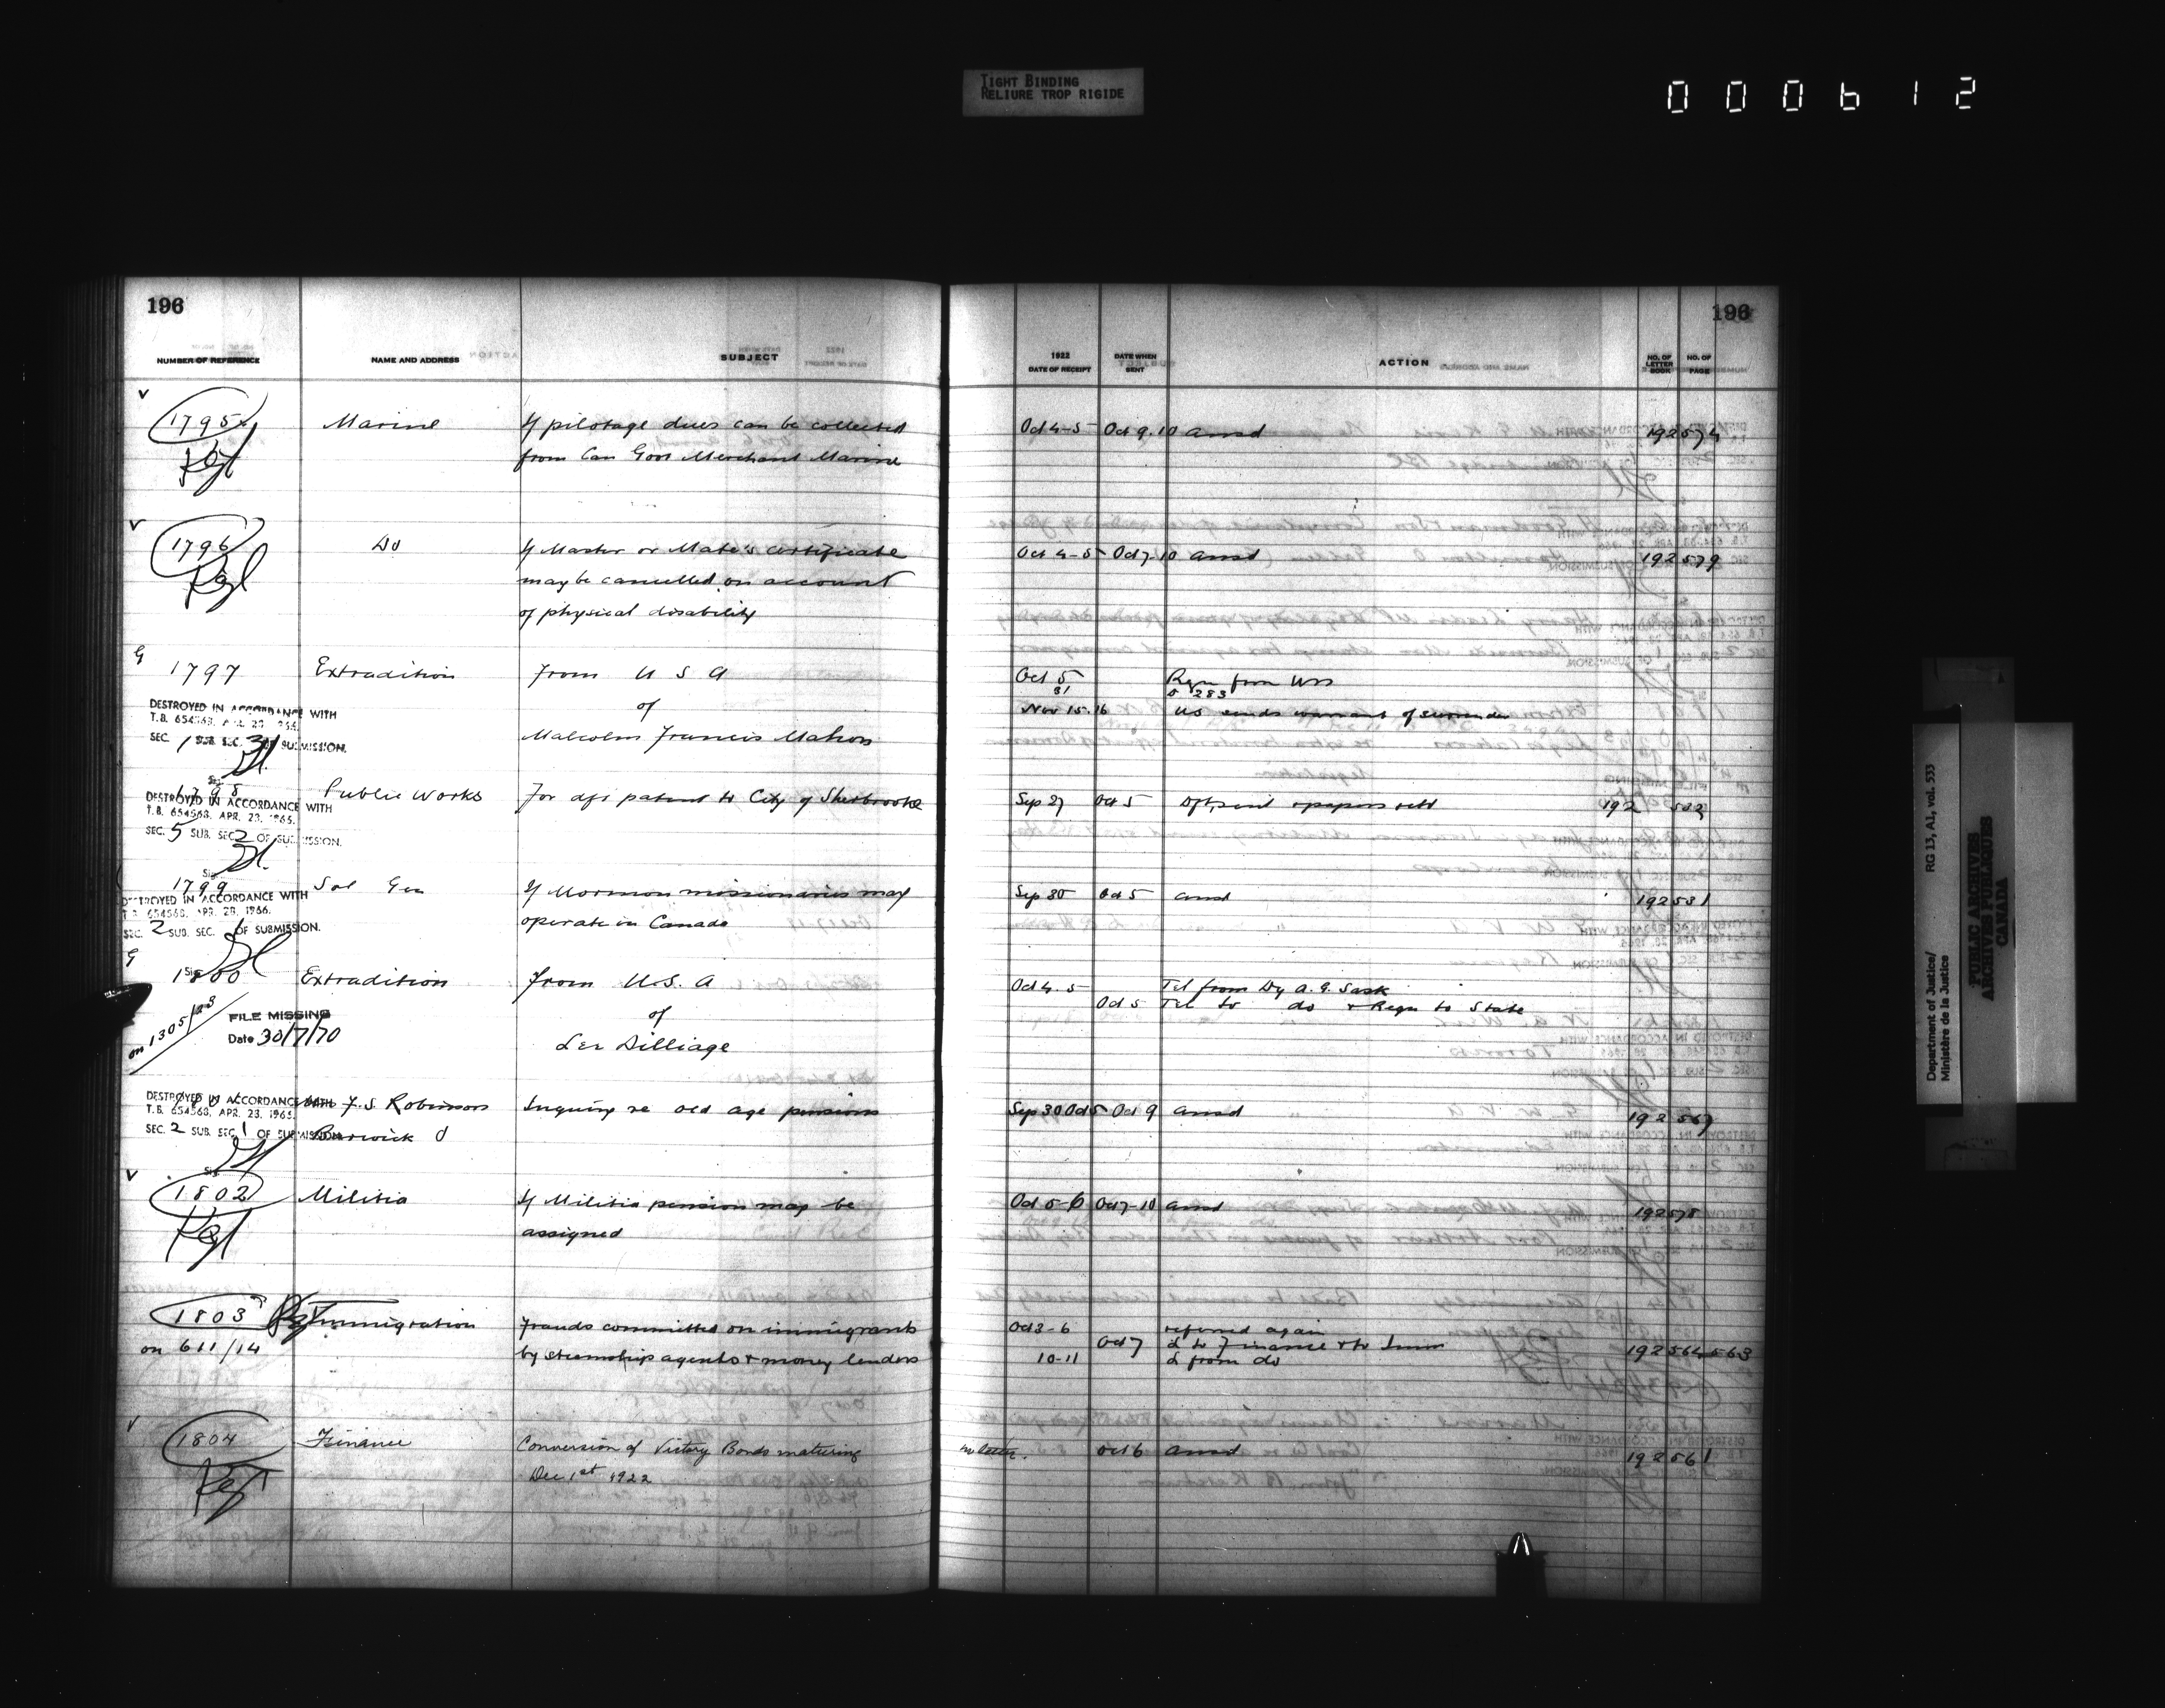 TIGHT BINDING
RELIURE TROP RIGIDE
000612
196
NUMBER OF REFERENCE NAME AND ADDRESS SUBJECT
1795 Marine If pilotage dues can be collected
from Can Govt Merchant Marine
1796 Do If Master or Mate's certificate
may be cancelled on account
of physical disability
G
1797 Extradition from U S A
of
Malcolm Francis Mahon
DESTROYED IN ACCORDANCE WITH
T.B. 654563, APR. 23, 1966.
SEC. 1 SUB. SEC. 3 OF SUBMISSION.
Sig.
1798 Public Works For dft patent to City of Sherbrooke
DESTROYED IN ACCORDANCE WITH
T.B. 654563, APR. 23, 1966.
SEC. 5 SUB. SEC. 2 OF SUBMISSION.
Sig.
1799 Sol Gen If Mormon missionaries may
operate in Canada
DESTROYED IN ACCORDANCE WITH
T.B. 654563, APR. 28, 1966.
SEC. 2 SUB. SEC. 1 OF SUBMISSION.
G
Sig.
1800 Extradition from U.S. A
of
Lee Dilliage
on 1305/23
FILE MISSING
Date 30/7/70
F. S. Robinson Inquiry re old age pensions
Berwick
DESTROYED IN ACCORDANCE WITH
T.B. 654563, APR. 23, 1966.
SEC. 2 SUB. SEC. 1 OF SUBMISSION.
Sig.
1802 Militia If Militia pension may be
assigned
1803 Immigration Frauds committed on immigrants
on 611/14 by steamship agents & money lenders
1804 Finance Conversion of Victory Bonds maturing
Dec 1st 1922
196
1922
DATE OF RECEIPT DATE WHEN SENT ACTION NO. OF LETTER BOOK NO. OF PAGE
Oct 4-5 Oct 9.10 ansd 192 574
Oct 4-5 Oct 7-10 ansd 192 579
Oct 5 Reqn from
31 283
Nov 15.16 US sends warrant of surrender
Sep 27 Oct 5 Dft sent & papers retd 192 532
Sep 30 Oct 5 ansd 192 531
Oct 4.5 Tel from Dy A. G. Sask
Oct 5 Tel to do & Reqn to State
Sep 30 Oct 5 Oct 9 ansd 192 567
Oct 5-6 Oct 7-10 ansd 192 578
Oct 3-6 referred again
Oct 7 L to Finance & to Immn 192 564 563
10-11 L from do
no letter. Oct 6 ansd 192 561
Department of Justice/ RG 13, A1, vol. 533
Ministère de la Justice
PUBLIC ARCHIVES
ARCHIVES PUBLIQUES
CANADA